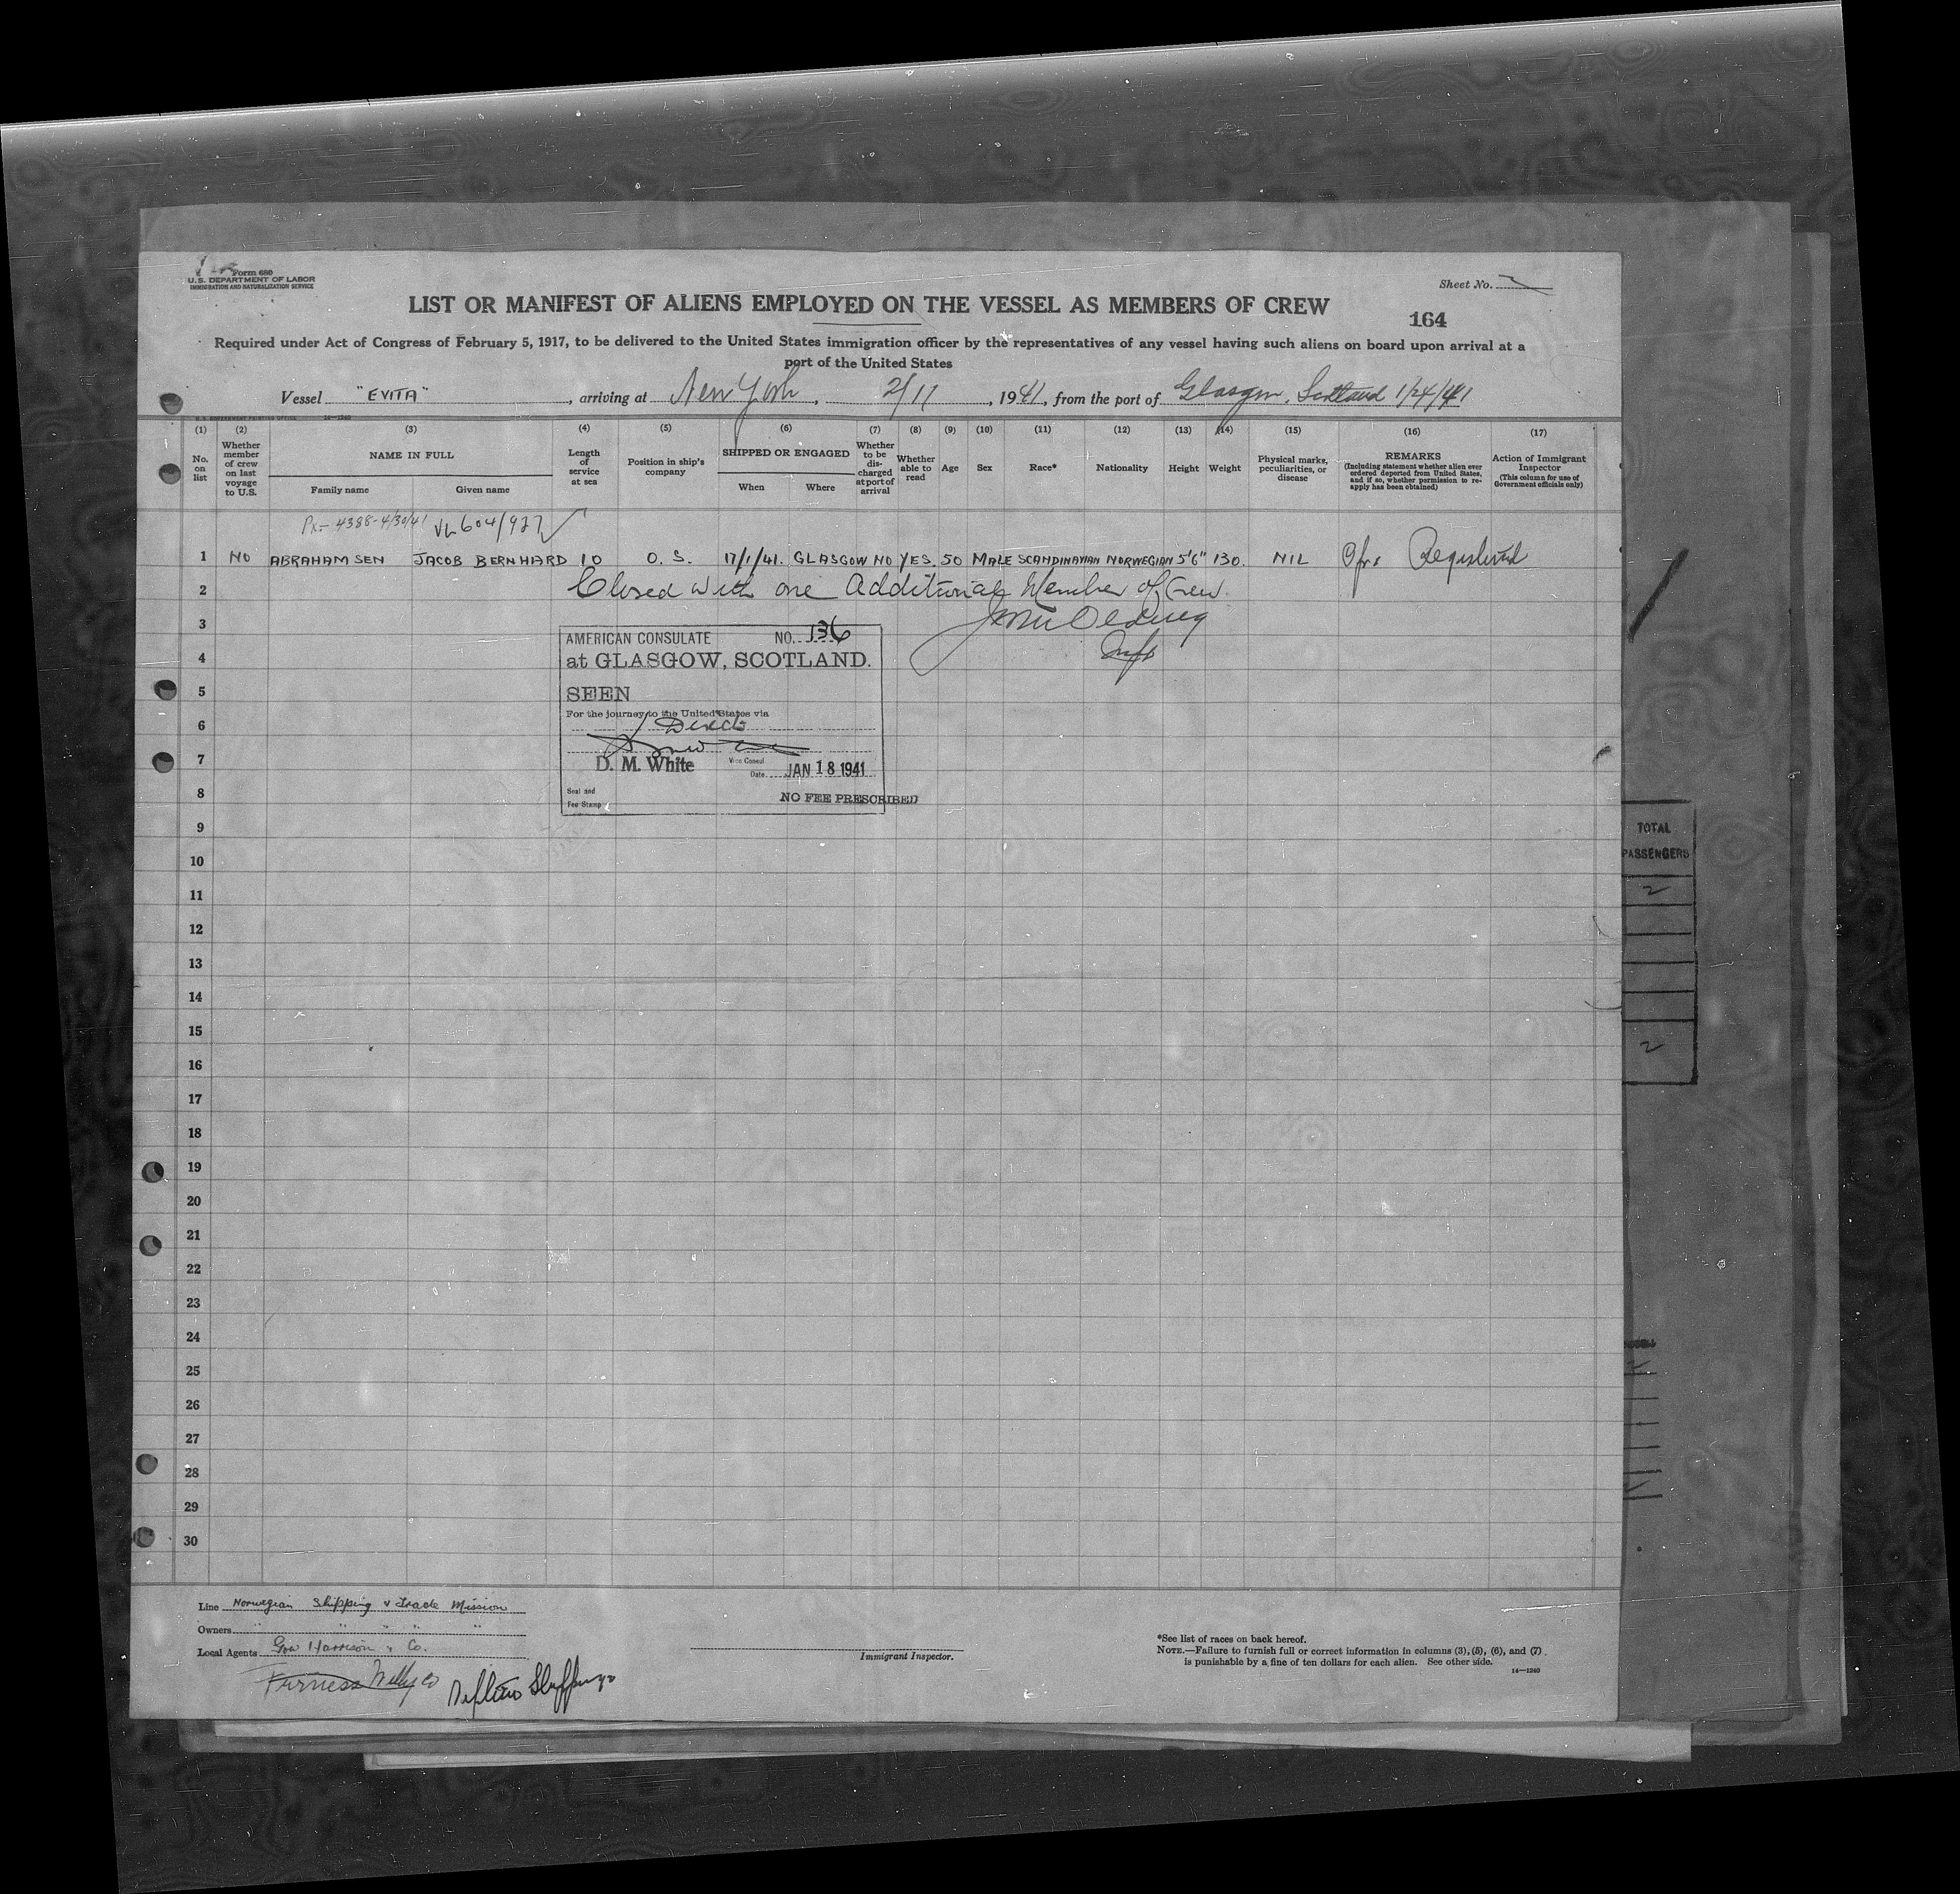 Form 680
U.S. DEPARTMENT OF LABOR
IMMIGRATION AND NATURALIZATION SERVICE
Sheet No.
LIST OR MANIFEST OF ALIENS EMPLOYED ON THE VESSEL AS MEMBERS OF CREW
164
Required under Act of Congress of February 5, 1917, to be delivered to the United States immigration officer by the representatives of any vessel having such aliens on board upon arrival at a
port of the United States
Vessel "EVITA", arriving at New York, 2/11, 1941, from the port of Glasgow, Scotland 1/24/41
U.S. GOVERNMENT PRINTING OFFICE 14—1240
(1) (2) (3) (4) (5) (6) (7) (8) (9) (10) (11) (12) (13) (14) (15) (16) (17)
No. on list
Whether member of crew on last voyage to U.S.
NAME IN FULL
Family name Given name
Length of service at sea
Position in ship's company
SHIPPED OR ENGAGED
When Where
Whether to be discharged at port of arrival
Whether able to read
Age
Sex
Race*
Nationality
Height
Weight
Physical marks, peculiarities, or disease
REMARKS
(Including statement whether alien ever ordered deported from United States, and if so, whether permission to reapply has been obtained)
Action of Immigrant Inspector
(This column for use of Government officials only)
Px- 4388-4/30/41 VL 604/927
1 NO ABRAHAMSEN JACOB BERNHARD 10 O. S. 17/1/41. GLASGOW NO YES. 50 MALE SCANDINAVIAN NORWEGIAN 5'6" 130. NIL Registered
2 Closed with one Additional Member of Crew.
3
4
5
6
7
8
9
10
11
12
13
14
15
16
17
18
19
20
21
22
23
24
25
26
27
28
29
30
AMERICAN CONSULATE NO. 136
at GLASGOW, SCOTLAND.
SEEN
For the journey to the United States via
Direct
D. M. White Vice Consul
Date JAN 18 1941
Seal and
Fee Stamp
NO FEE PRESCRIBED
TOTAL
PASSENGERS
2
2
Line Norwegian Shipping & Trade Mission
Owners " " " "
Local Agents Gow Harrison & Co.
Furness Withy Co
Immigrant Inspector.
*See list of races on back hereof.
NOTE.—Failure to furnish full or correct information in columns (3), (5), (6), and (7)
is punishable by a fine of ten dollars for each alien. See other side.
14—1240